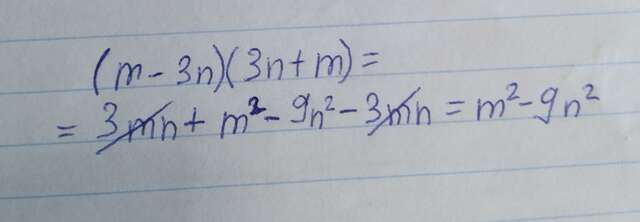 (m - 3n)(3n + m) =
= 3mn + m² - 9n² - 3mn = m² - 9n²